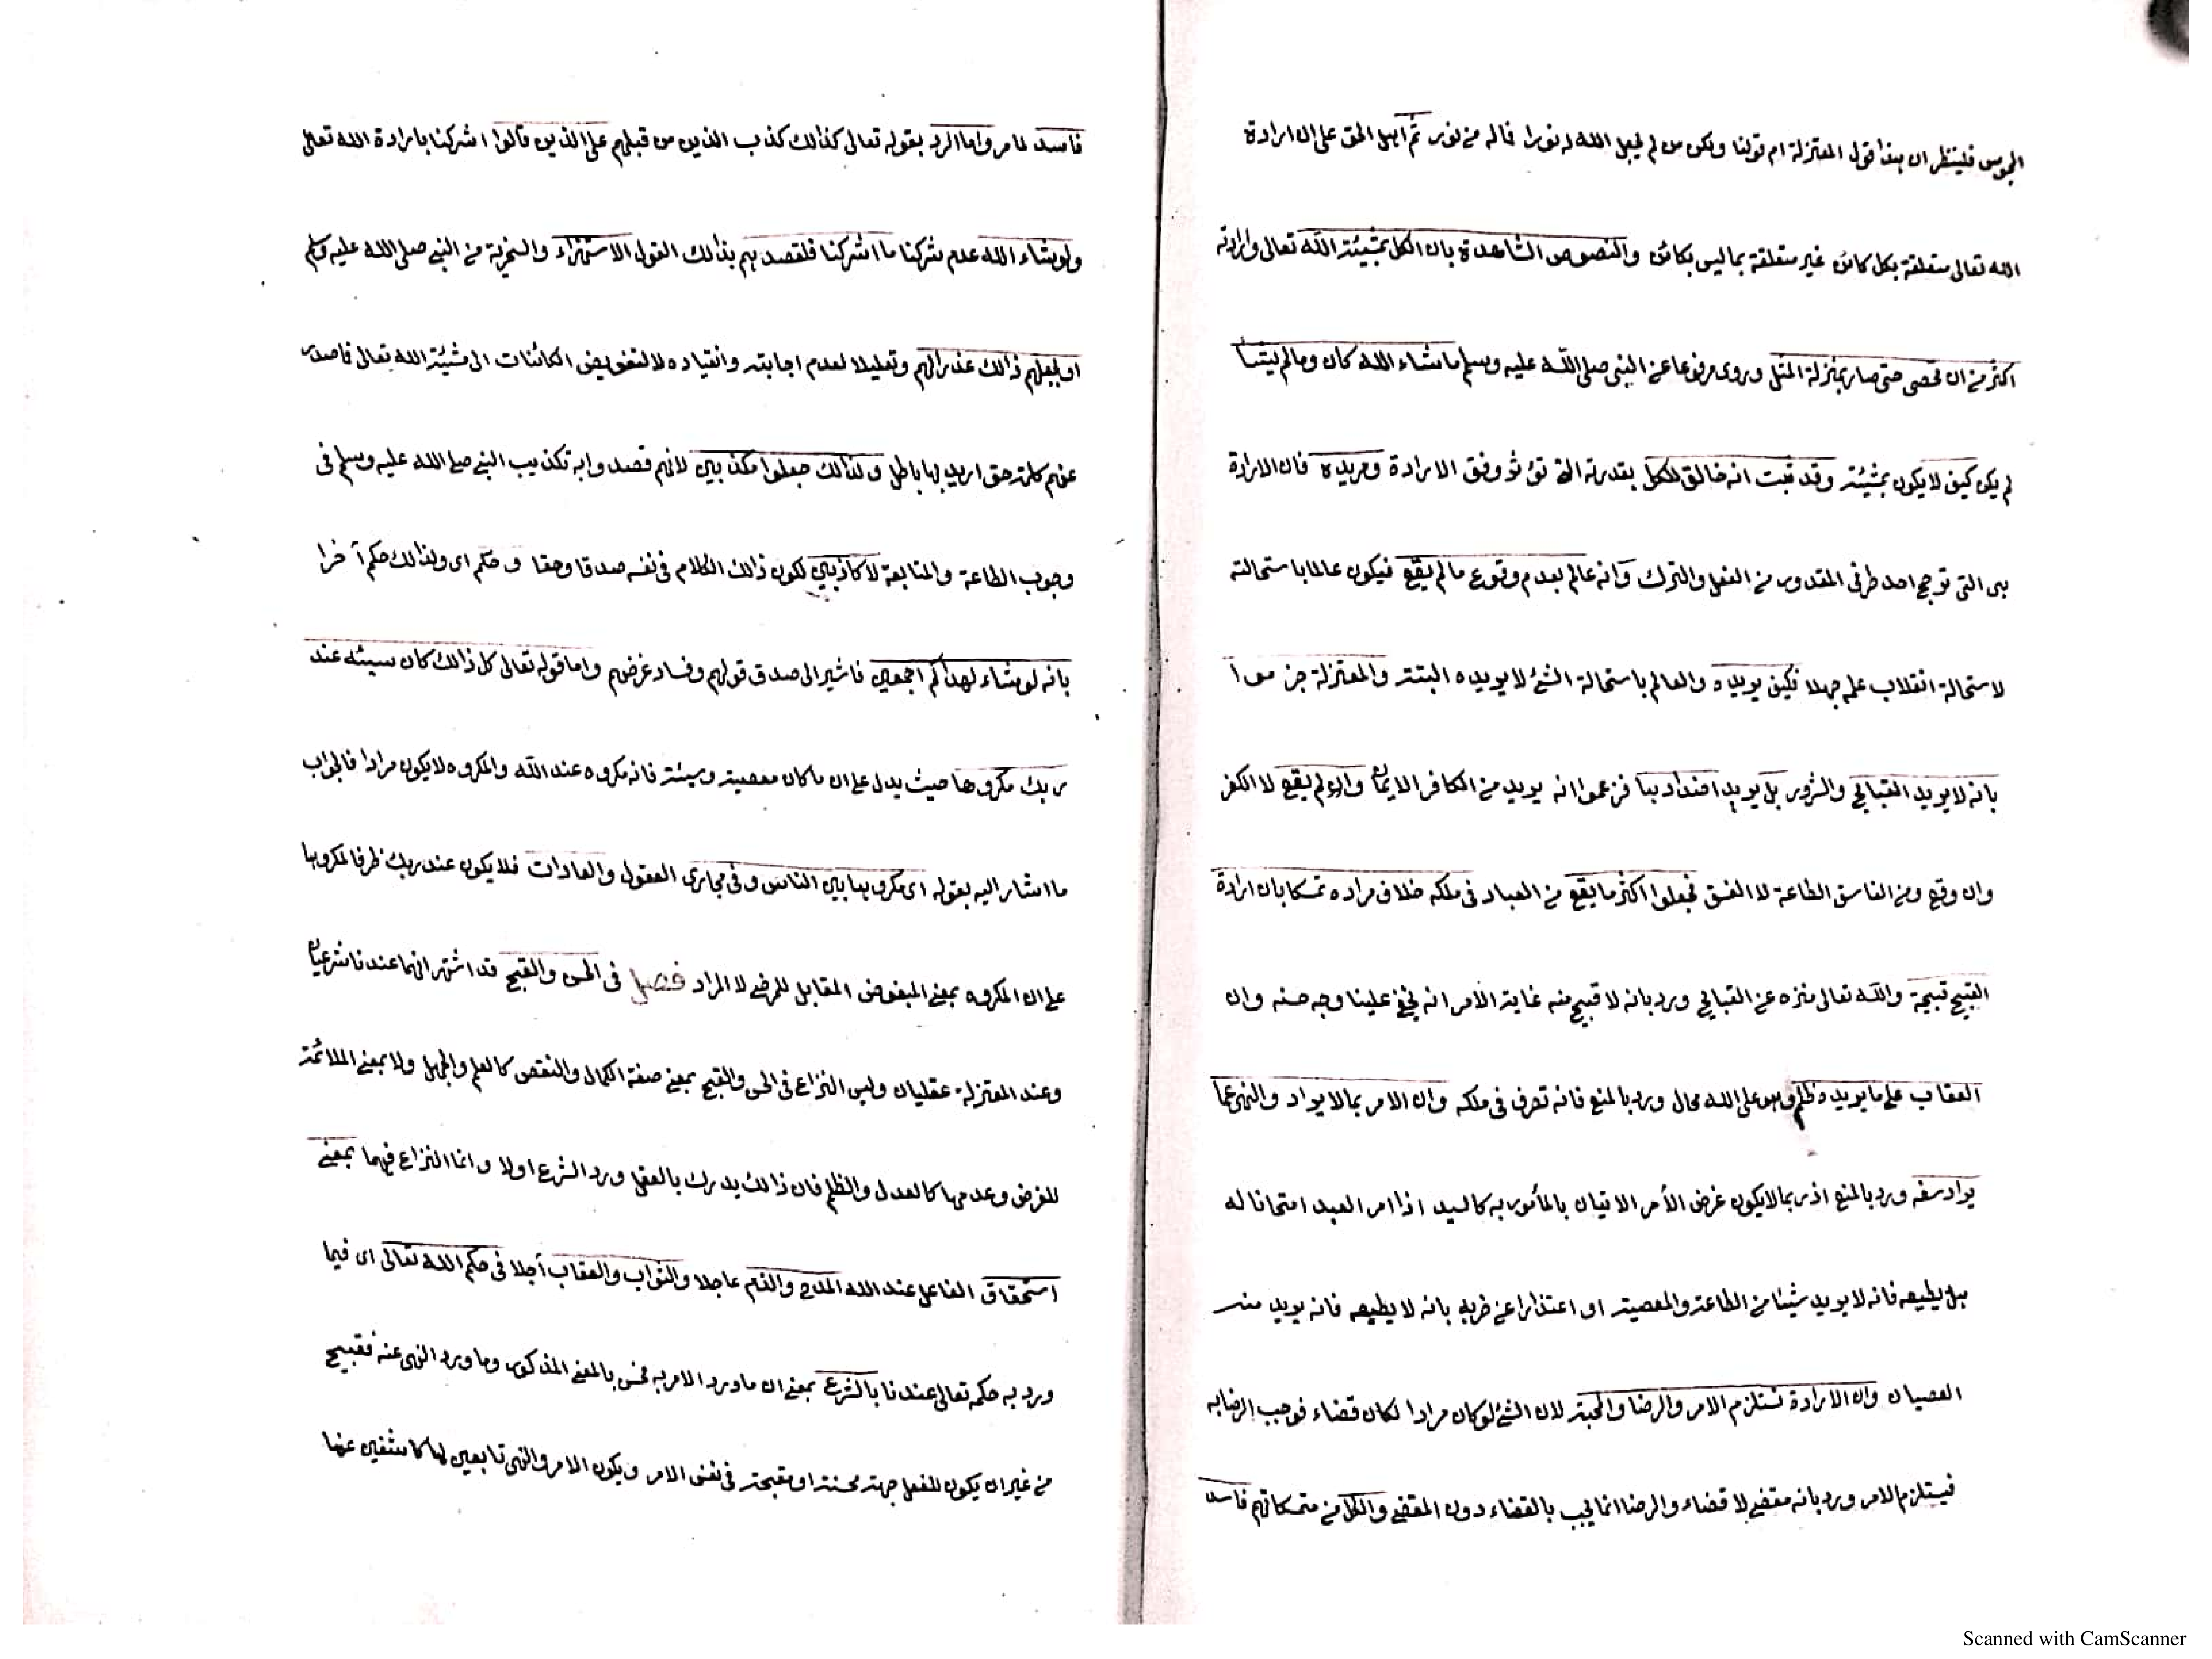 المجوس فلينظر ان هذا قول المعتزلة ام قولنا ولكن من لم يجعل الله له نورا فماله من نور ثم اهل الحق على ان ارادة
الله تعالى متعلقة بكل كائن غير متعلقة بما ليس بكائن والنصوص الشاهدة بان الكل بمشيئة الله تعالى وارادته
اكثر من ان تحصى حتى صار بمنزلة المثل وروى مرفوعا عن النبى صلى الله عليه وسلم ما شاء الله كان وما لم يشأ
لم يكن كيف لا يكون بمشيئته وقد ثبت انه خالق للكل بقدرته التى تؤثر وفق الارادة ومريده فان الارادة
هى التى ترجح احد طرفى المقدور من الفعل والترك وانه عالم بعدم وقوع ما لم يقع فيكون عالما باستحالته
لاستحالة انقلاب علمه جهلا فكيف يريده والعالم باستحالة الشئ لا يريده البتة والمعتزلة جزموا
بانه لا يريد القبائح والشرور بل يريد اضدادها فزعموا انه يريد من الكافر الايمان وان لم يقع لا الكفر
وان وقع ومن الفاسق الطاعة لا الفسق فجعلوا اكثر ما يقع من العباد فى ملكه خلاف مراده تمسكا بان ارادة
القبيح قبيحة والله تعالى منزه عن القبائح ورد بانه لا قبيح منه غاية الامر انه يخفى علينا وجه حسنه وان
العقاب على ما يريده ظلم وهو على الله محال ورد بالمنع فانه تصرف فى ملكه وان الامر بما لا يراد والنهى عما
يراد سفه ورد بالمنع اذ ربما لا يكون غرض الأمر الاتيان بالمأمور به كالسيد اذا امر العبد امتحانا له
هل يطيعه فانه لا يريد شيئا من الطاعة والمعصية او اعتذارا عن ضربه بانه لا يطيعه فانه يريد منه
العصيان وان الارادة تستلزم الامر والرضا والمحبة لان الشئ لو كان مرادا لكان قضاء فوجب الرضا به
فيستلزم الامر ورد بانه مقضى لا قضاء والرضا انما يجب بالقضاء دون المقضى والكل من متمسكاتهم فاسد
فاسد لما مر واما الرد بقوله تعالى كذالك كذب الذين من قبلهم على الذين قالوا اشركنا بارادة الله تعالى
ولو شاء الله عدم شركنا ما اشركنا فلقصدهم بذالك القول الاستهزاء والسخرية من النبى صلى الله عليه وسلم
او لجعلهم ذالك عذرا لهم وتعليلا لعدم اجابته وانقياده لا لتفويض الكائنات الى مشيئة الله تعالى فما صدر
عنهم كلمة حق اريد بها باطل ولذالك جعلوا مكذبين لأنهم قصدوا به تكذيب النبى صلى الله عليه وسلم فى
وجوب الطاعة والمتابعة لا كاذبين لكون ذالك الكلام فى نفسه صدقا وحقا وحكم اى ولذالك حكم آخرا
بانه لو شاء لهداكم اجمعين فاشير الى صدق قولهم وفساد غرضهم واما قوله تعالى كل ذالك كان سيئه عند
ربك مكروها حيث يدل على ان ما كان معصية وسيئة فانه مكروه عند الله والمكروه لا يكون مرادا فالجواب
ما اشار اليه بقوله اى مكروها بين الناس وفى مجارى العقول والعادات فلا يكون عند ربك ظرفا لمكروها
على ان المكروه بمعنى المبغوض المقابل للمرضى لا المراد فصل فى الحسن والقبح قد اشتهر انهما عندنا شرعيان
وعند المعتزلة عقليان وليس النزاع فى الحسن والقبح بمعنى صفة الكمال والنقص كالعلم والجهل ولا بمعنى الملائمة
للغرض وعدمها كالعدل والظلم فان ذالك يدرك بالعقل ورد الشرع اولا وانما النزاع فيهما بمعنى
استحقاق الفاعل عند الله المدح والذم عاجلا والثواب والعقاب آجلا فى حكم الله تعالى اى فيما
ورد به حكمه تعالى عندنا بالشرع بمعنى ان ما ورد الامر به فحسن بالمعنى المذكور وما ورد النهى عنه فقبيح
من غير ان يكون للفعل جهة محسنة او مقبحة فى نفس الامر ويكون الامر والنهى تابعين لها كاشفين عنها
Scanned with CamScanner